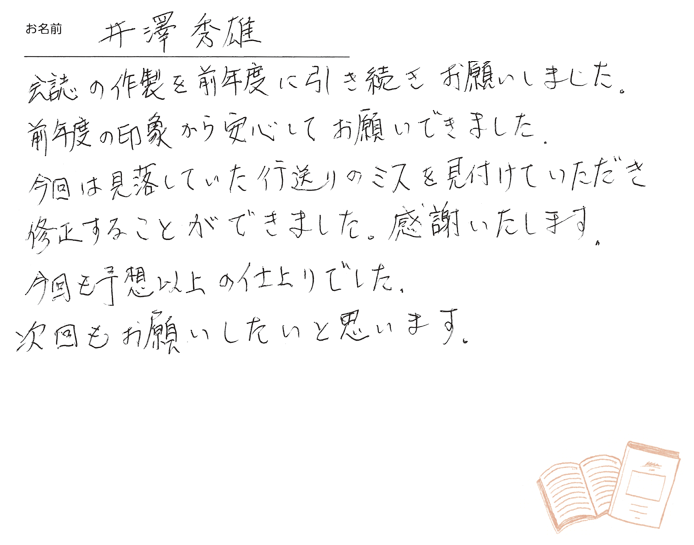 お名前 井澤秀雄
会誌の作製を前年度に引き続きお願いしました。
前年度の印象から安心してお願いできました.
今回は見落していた行送りのミスを見付けていただき
修正することができました。感謝いたします。
今回も予想以上の仕上りでした.
次回もお願いしたいと思います。